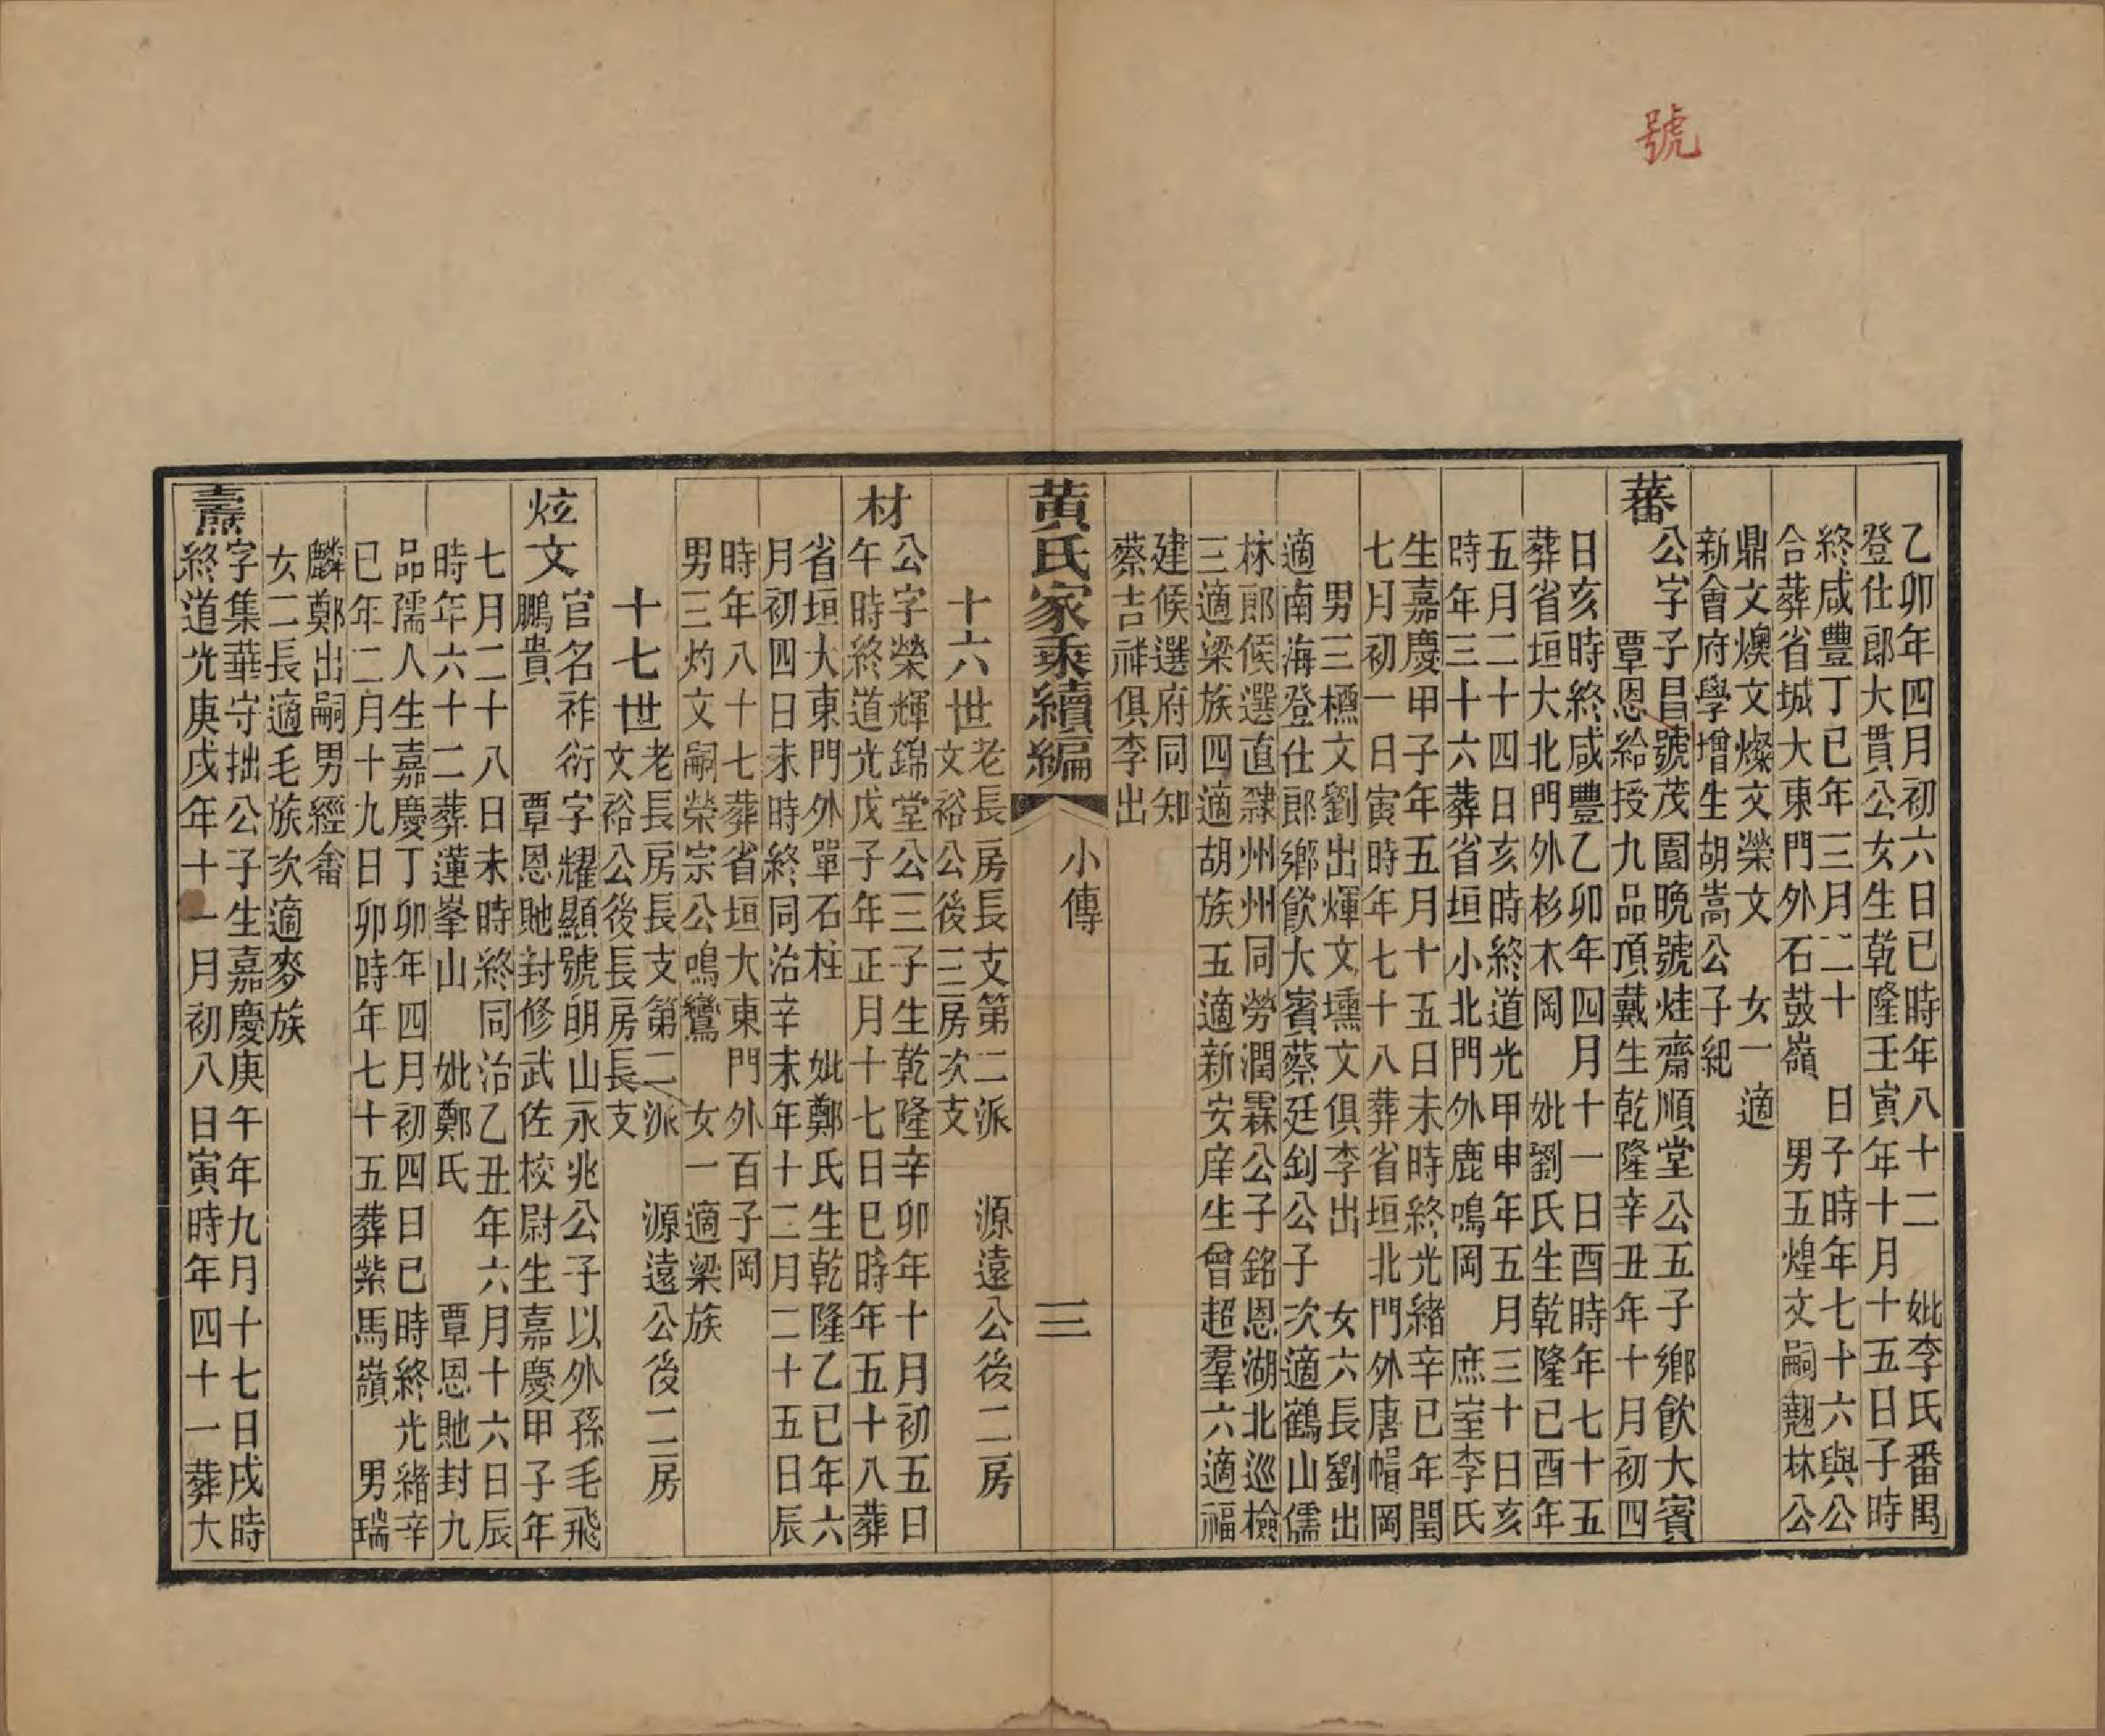 號
乙卯年四月初六日巳時年八十二　妣李氏番禺
登仕郎大貫公女生乾隆壬寅年十月十五日子時
終咸豐丁巳年三月二十　日子時年七十六與公
合葬省城大東門外石鼓嶺　男五煌文嗣翹林公
鼎文燠文燦文榮文　女一適
新會府學增生胡嵩公子紀
蕃
公字子昌號茂園晚號烓齋順堂公五子鄉飲大賓
覃恩給授九品頂戴生乾隆辛丑年十月初四
日亥時終咸豐乙卯年四月十一日酉時年七十五
葬省垣大北門外杉木岡　妣劉氏生乾隆己酉年
五月二十四日亥時終道光甲申年五月三十日亥
時年三十六葬省垣小北門外鹿鳴岡　庶室李氏
生嘉慶甲子年五月十五日未時終光緒辛巳年閏
七月初一日寅時年七十八葬省垣北門外唐帽岡
男三櫏文劉出煇文壎文俱李出　女六長劉出
適南海登仕郎鄉飲大賓蔡廷釗公子　次適鶴山儒
林郎候選直隸州州同勞潤霖公子銘恩湖北巡檢
三適梁族四適胡族五適新安庠生曾超羣六適福
建候選府同知
蔡吉祥俱李出
黃氏家乘續編
小傳
三
十六世
老長房長支第二派　源遠公後二房
文裕公後三房次支
材
公字榮輝錦堂公三子生乾隆辛卯年十月初五日
午時終道光戊子年正月十七日巳時年五十八葬
省垣大東門外單石柱　妣鄭氏生乾隆乙巳年六
月初四日未時終同治辛未年十二月二十五日辰
時年八十七葬省垣大東門外百子岡
男三灼文嗣榮宗公鳴鸞　女一適梁族
十七世
老長房長支第二派　源遠公後二房
文裕公後長房長支
炫文
官名祚衍字耀顯號明山永兆公子以外孫毛飛
鵬貴　覃恩貤封修武佐校尉生嘉慶甲子年
七月二十八日未時終同治乙丑年六月十六日辰
時年六十二葬蓮峯山　妣鄭氏　覃恩貤封九
品孺人生嘉慶丁卯年四月初四日巳時終光緒辛
巳年二月十九日卯時年七十五葬紫馬嶺　男瑞
麟鄭出嗣男經畬
女二長適毛族次適麥族
燾
字集華守拙公子生嘉慶庚午年九月十七日戌時
終道光庚戌年十一月初八日寅時年四十一葬大